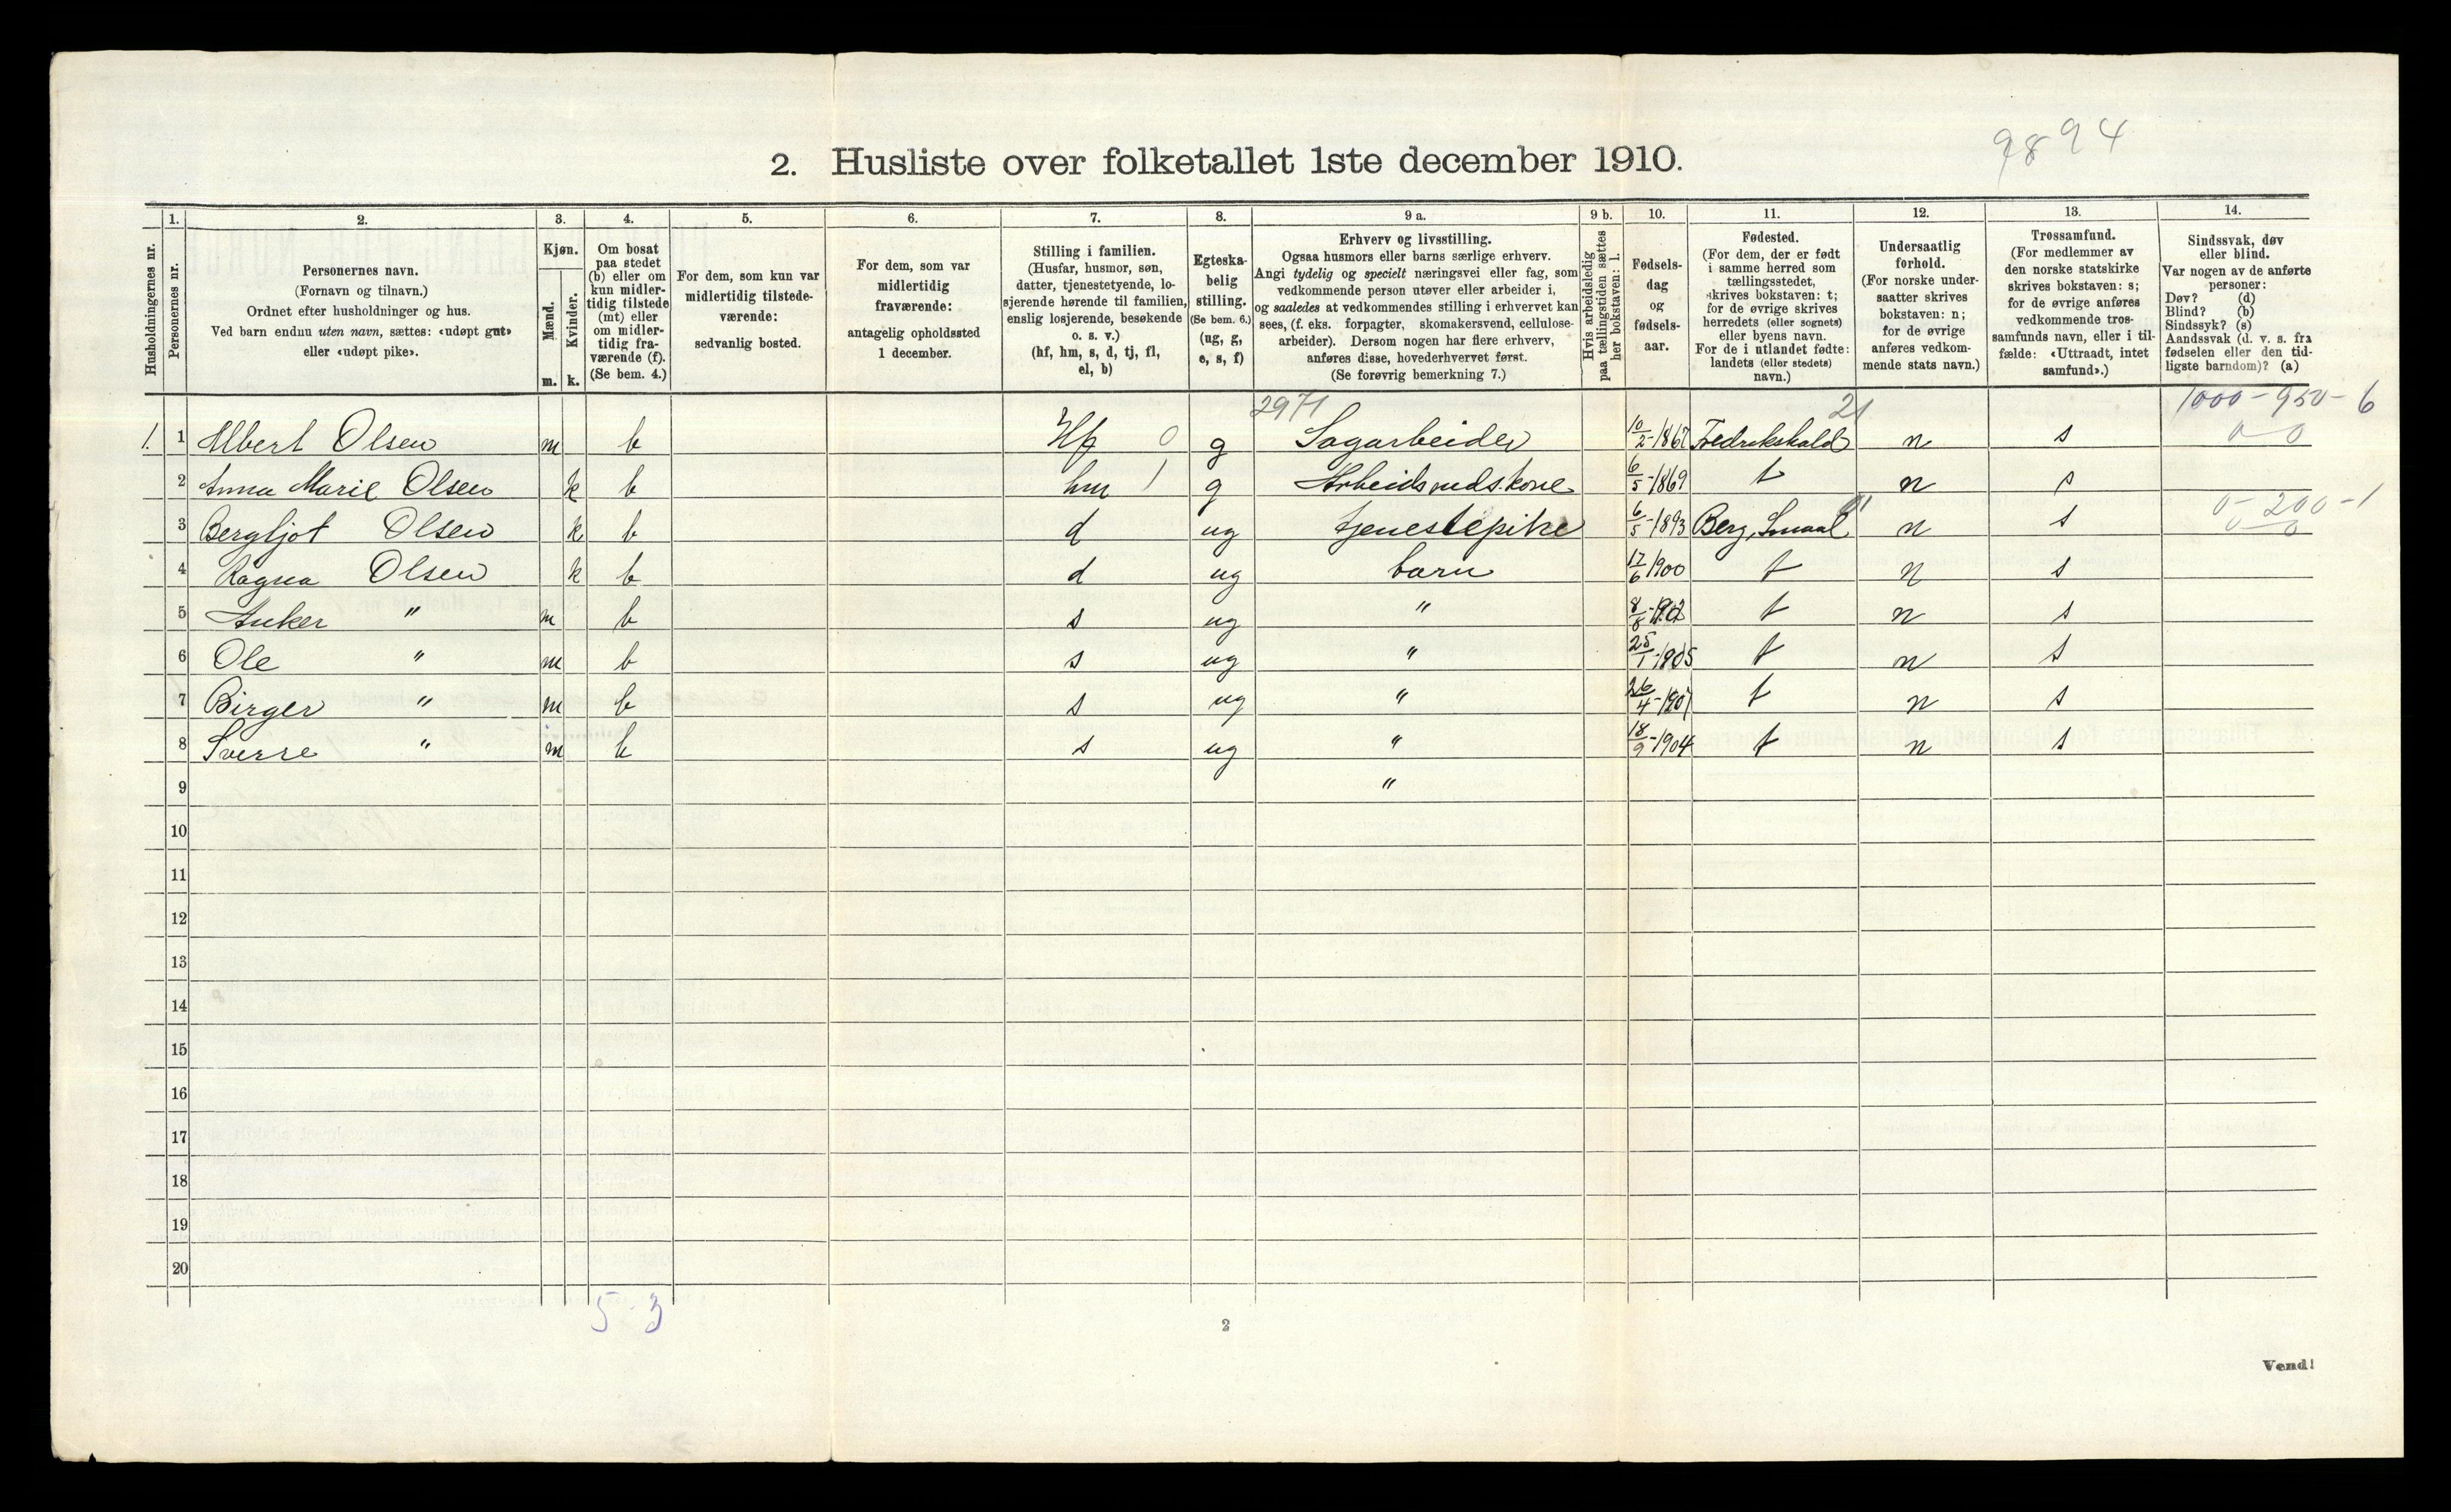 9894
2. Husliste over folketallet 1ste december 1910.
Husholdningernes nr.
1.
Personernes nr.
2.
Personernes navn.
(Fornavn og tilnavn.)
Ordnet efter husholdninger og hus.
Ved barn endnu uten navn, sættes: «udøpt gut»
eller «udøpt pike».
3.
Kjøn.
Mænd.
Kvinder.
m. k.
4.
Om bosat
paa stedet
(b) eller om
kun midler-
tidig tilstede
(mt) eller
om midler-
tidig fra-
værende (f).
(Se bem. 4.)
5.
For dem, som kun var
midlertidig tilstede-
værende:
sedvanlig bosted.
6.
For dem, som var
midlertidig
fraværende:
antagelig opholdssted
1 december.
7.
Stilling i familien.
(Husfar, husmor, søn,
datter, tjenestetyende, lo-
sjerende hørende til familien,
enslig losjerende, besøkende
o. s. v.)
(hf, hm, s, d, tj, fl,
el, b)
8.
Egteska-
belig
stilling.
(Se bem. 6.)
(ug, g,
e, s, f)
9 a.
Erhverv og livsstilling.
Ogsaa husmors eller barns særlige erhverv.
Angi tydelig og specielt næringsvei eller fag, som
vedkommende person utøver eller arbeider i,
og saaledes at vedkommendes stilling i erhvervet kan
sees, (f. eks. forpagter, skomakersvend, cellulose-
arbeider). Dersom nogen har flere erhverv,
anføres disse, hovederhvervet først.
(Se forøvrig bemerkning 7.)
9 b.
Hvis arbeidsledig
paa tællingstiden sættes
her bokstaven: l.
10.
Fødsels-
dag
og
fødsels-
aar.
11.
Fødested.
(For dem, der er født
i samme herred som
tællingsstedet,
skrives bokstaven: t;
for de øvrige skrives
herredets (eller sognets)
eller byens navn.
For de i utlandet fødte:
landets (eller stedets)
navn.)
12.
Undersaatlig
forhold.
(For norske under-
saatter skrives
bokstaven: n;
for de øvrige
anføres vedkom-
mende stats navn.)
13.
Trossamfund.
(For medlemmer av
den norske statskirke
skrives bokstaven: s;
for de øvrige anføres
vedkommende tros-
samfunds navn, eller i til-
fælde: «Uttraadt, intet
samfund».)
14.
Sindssvak, døv
eller blind.
Var nogen av de anførte
personer:
Døv? (d)
Blind? (b)
Sindssyk? (s)
Aandssvak (d. v. s. fra
fødselen eller den tid-
ligste barndom)? (a)
2971 21 1000-950-6
1. 1 Albert Olsen m b Hf 0 g Sagarbeider 10/2-1867 Fredrikshald n s 0-0
2 Anna Marie Olsen k b hm 1 g Arbeidsmds.kone 6/5-1869 t n s
0-200-1
3 Bergljot Olsen k b d ug tjenestepike 6/5-1893 Berg, Smaal. 01 n s 0-0
4 Ragna Olsen k b d ug barn 17/6 1900 t n s
5 Anker " m b s ug " 8/8-1902 t n s
6 Ole " m b s ug " 25/1-1905 t n s
7 Birger " m b s ug " 26/4-1907 t n s
8 Sverre " m b s ug " 18/9-1904 t n s
9 "
10
11
12
13
14
15
16
17
18
19
20
5-3
2
Vend!